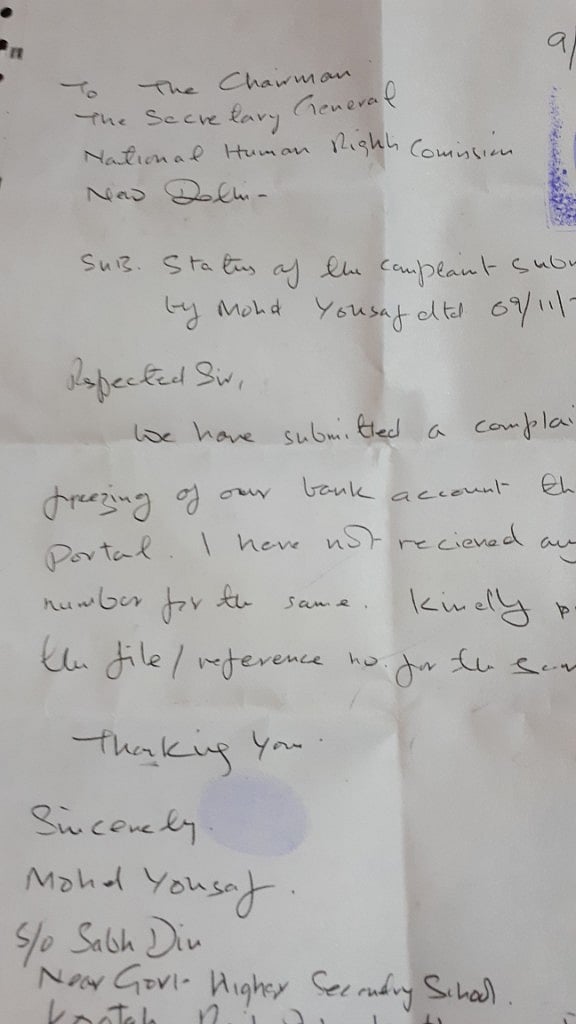 9/
To The Chairman
The Secretary General
National Human Rights Comission
New Delhi-
SUB. Status of the complaint subm
by Mohd Yousaf dtd 09/11/
Respected Sir,
We have submitted a complai
freezing of our bank account th
Portal. I have not recieved any
number for the same. Kindly p
the file/reference no. for the sam
Thanking You.
Sincerely
Mohd Yousaf.
S/o Sabh Din
Near Govt- Higher Secondary School.